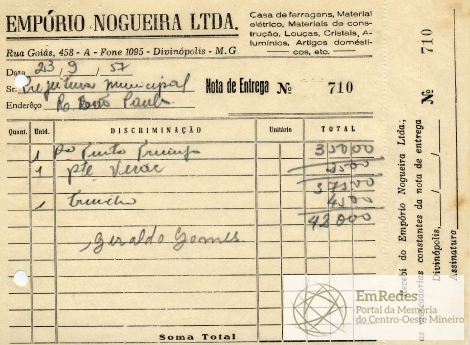 EMPÓRIO NOGUEIRA LTDA.
Casa de ferragens, Material
elétrico, Materiais de cons-
trução, Louças, Cristais, A-
lumínios, Artigos domésti-
cos, etc.
Rua Goiás, 458 - A - Fone 1095 - Divinópolis - M.G.
Data 23/9/57
Sr. Prefeitura Municipal
Endereço
Nota de Entrega Nº 710
Quant. Unid. DISCRIMINAÇÃO Unitário TOTAL
1 35000
1 pte 2500
37500
1 trincho 4500
42000
Geraldo Gomes
Soma Total
Nº 710
do Empório Nogueira Ltda.,
as mercadorias constantes da nota de entrega
Divinópolis, / /
Assinatura
EmRedes
Portal da Memória
do Centro-Oeste Mineiro